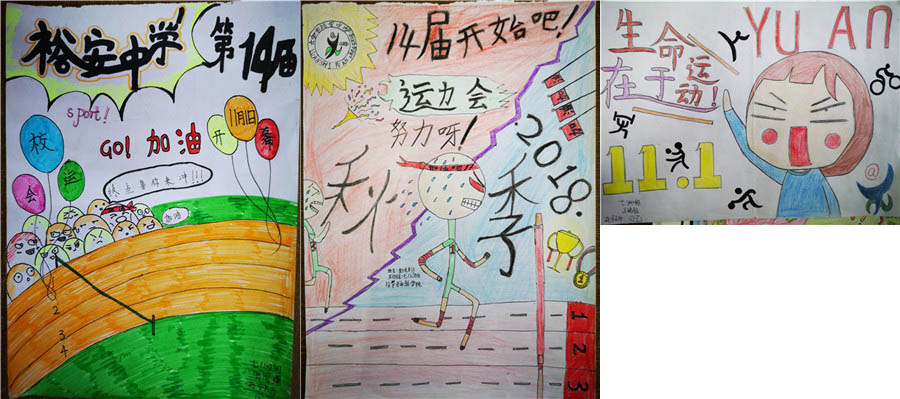 裕安中学
第14届
sport!
Go! 加油
校
会
运
开
11月1日
幕
终点等你来冲!!!
加油
1
2
3
4
14届开始吧!
运力会
努力呀!
秋季
2018.
1
2
3
生命
在于运动!
YU AN
11.1
@